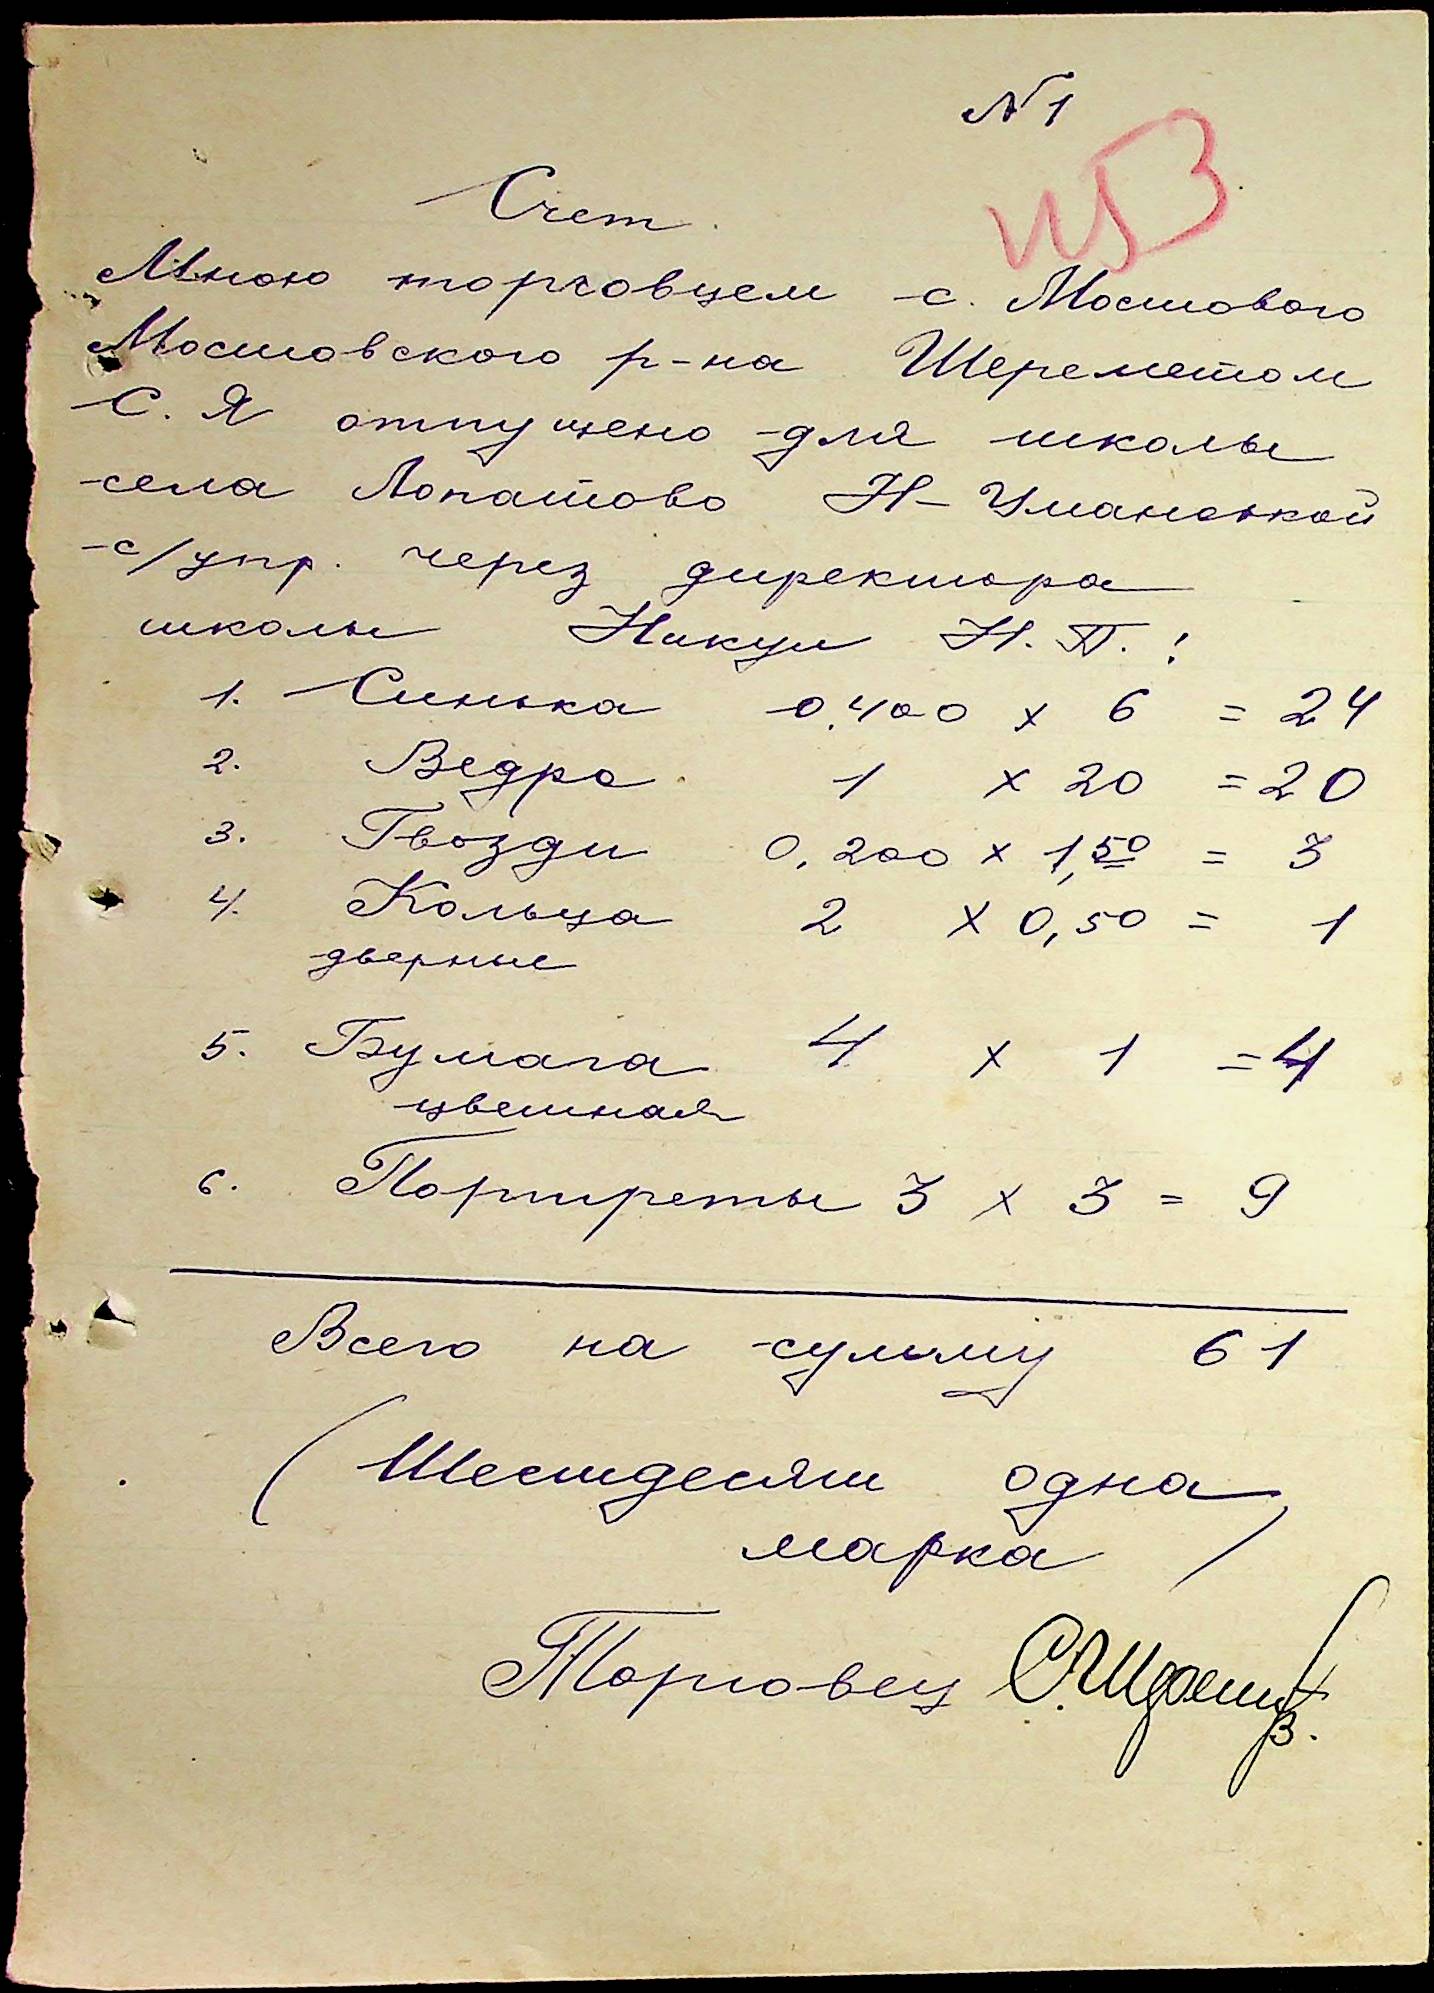 № 1
Счет.
Мною торговцем с. Мостового
Мостовского р-на Шереметом
С. Я отпущено для школы
села Лопатово Н-Уманської
с/упр. через директора
школы Никул Н. П. :
1. Синька 0,400 х 6 = 24
2. Ведро 1 х 20 = 20
3. Гвозди 0,200 х 1,50 = 3
4. Кольца 2 х 0,50 = 1
дверные
5. Бумага 4 х 1 = 4
цветная
6. Портреты 3 х 3 = 9
Всего на сумму 61
(Шестдесят одна
марка)
Торговец